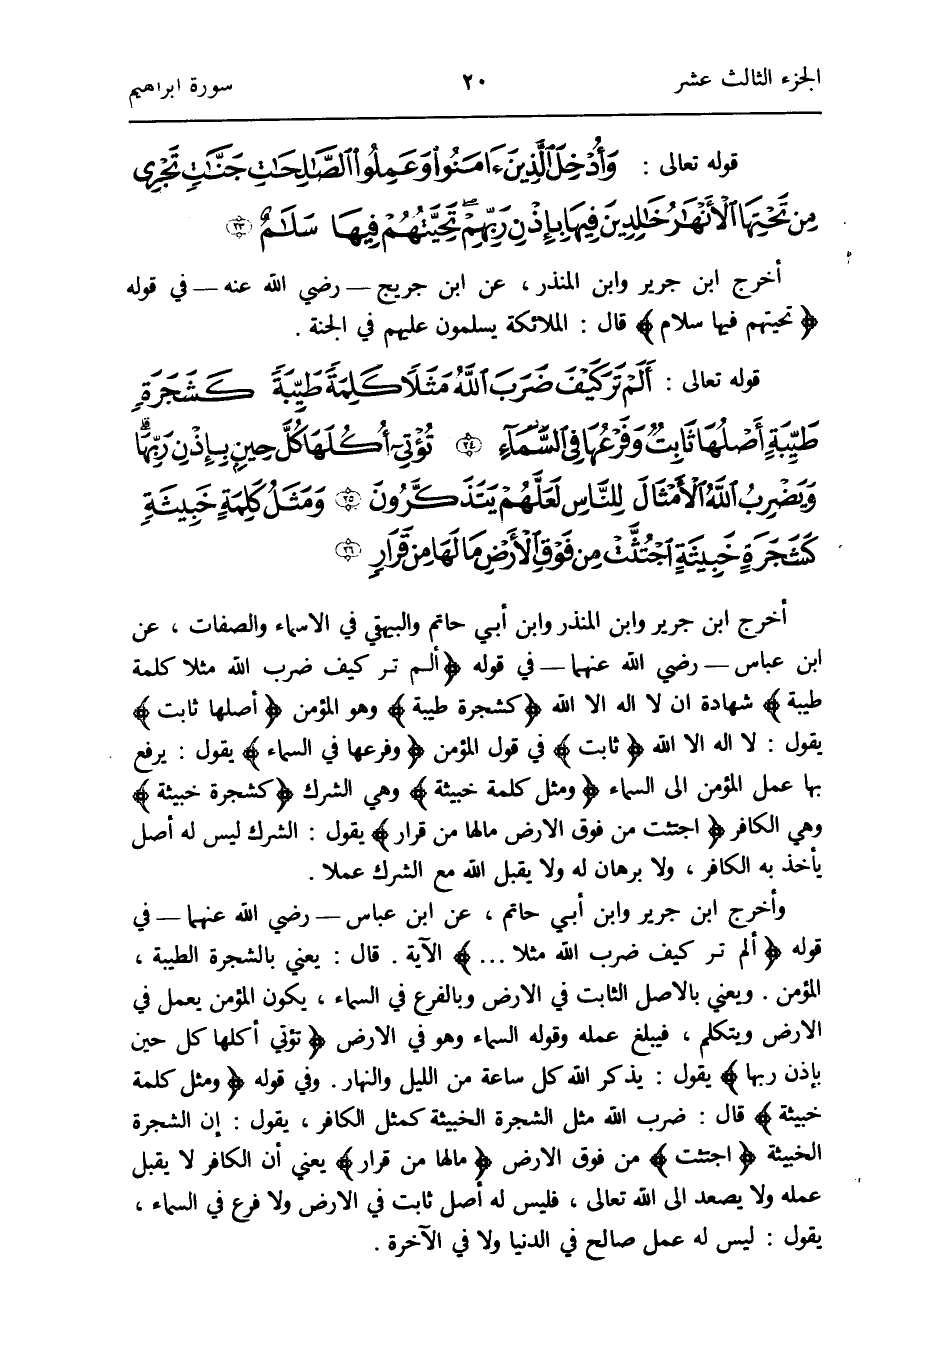 الجزء الثالث عشر ٢٠ سورة ابراهيم
قوله تعالى : وَأُدْخِلَ ٱلَّذِينَ ءَامَنُوا۟ وَعَمِلُوا۟ ٱلصَّـٰلِحَـٰتِ جَنَّـٰتٍ تَجْرِى
مِن تَحْتِهَا ٱلْأَنْهَـٰرُ خَـٰلِدِينَ فِيهَا بِإِذْنِ رَبِّهِمْ ۖ تَحِيَّتُهُمْ فِيهَا سَلَـٰمٌ ﴿٢٣﴾
أخرج ابن جرير وابن المنذر ، عن ابن جريج – رضي الله عنه – في قوله
﴿ تحيتهم فيها سلام ﴾ قال : الملائكة يسلمون عليهم في الجنة .
قوله تعالى : أَلَمْ تَرَ كَيْفَ ضَرَبَ ٱللَّهُ مَثَلًا كَلِمَةً طَيِّبَةً كَشَجَرَةٍ
طَيِّبَةٍ أَصْلُهَا ثَابِتٌ وَفَرْعُهَا فِى ٱلسَّمَآءِ ﴿٢٤﴾ تُؤْتِىٓ أُكُلَهَا كُلَّ حِينٍ بِإِذْنِ رَبِّهَا ۗ
وَيَضْرِبُ ٱللَّهُ ٱلْأَمْثَالَ لِلنَّاسِ لَعَلَّهُمْ يَتَذَكَّرُونَ ﴿٢٥﴾ وَمَثَلُ كَلِمَةٍ خَبِيثَةٍ
كَشَجَرَةٍ خَبِيثَةٍ ٱجْتُثَّتْ مِن فَوْقِ ٱلْأَرْضِ مَا لَهَا مِن قَرَارٍ ﴿٢٦﴾
أخرج ابن جرير وابن المنذر وابن أبي حاتم والبيهقي في الاسماء والصفات ، عن
ابن عباس – رضي الله عنهما – في قوله ﴿ ألم تر كيف ضرب الله مثلا كلمة
طيبة ﴾ شهادة ان لا اله الا الله ﴿ كشجرة طيبة ﴾ وهو المؤمن ﴿ أصلها ثابت ﴾
يقول : لا اله الا الله ﴿ ثابت ﴾ في قول المؤمن ﴿ وفرعها في السماء ﴾ يقول : يرفع
بها عمل المؤمن الى السماء ﴿ ومثل كلمة خبيثة ﴾ وهي الشرك ﴿ كشجرة خبيثة ﴾
وهي الكافر ﴿ اجتثت من فوق الارض مالها من قرار ﴾ يقول : الشرك ليس له أصل
يأخذ به الكافر ، ولا برهان له ولا يقبل الله مع الشرك عملا .
وأخرج ابن جرير وابن أبي حاتم ، عن ابن عباس – رضي الله عنهما – في
قوله ﴿ ألم تر كيف ضرب الله مثلا ... ﴾ الآية . قال : يعني بالشجرة الطيبة ،
المؤمن . ويعني بالاصل الثابت في الارض وبالفرع في السماء ، يكون المؤمن يعمل في
الارض ويتكلم ، فيبلغ عمله وقوله السماء وهو في الارض ﴿ تؤتي أكلها كل حين
بإذن ربها ﴾ يقول : يذكر الله كل ساعة من الليل والنهار . وفي قوله ﴿ ومثل كلمة
خبيثة ﴾ قال : ضرب الله مثل الشجرة الخبيثة كمثل الكافر ، يقول : إن الشجرة
الخبيثة ﴿ اجتثت ﴾ من فوق الارض ﴿ مالها من قرار ﴾ يعني أن الكافر لا يقبل
عمله ولا يصعد الى الله تعالى ، فليس له أصل ثابت في الارض ولا فرع في السماء ،
يقول : ليس له عمل صالح في الدنيا ولا في الآخرة .